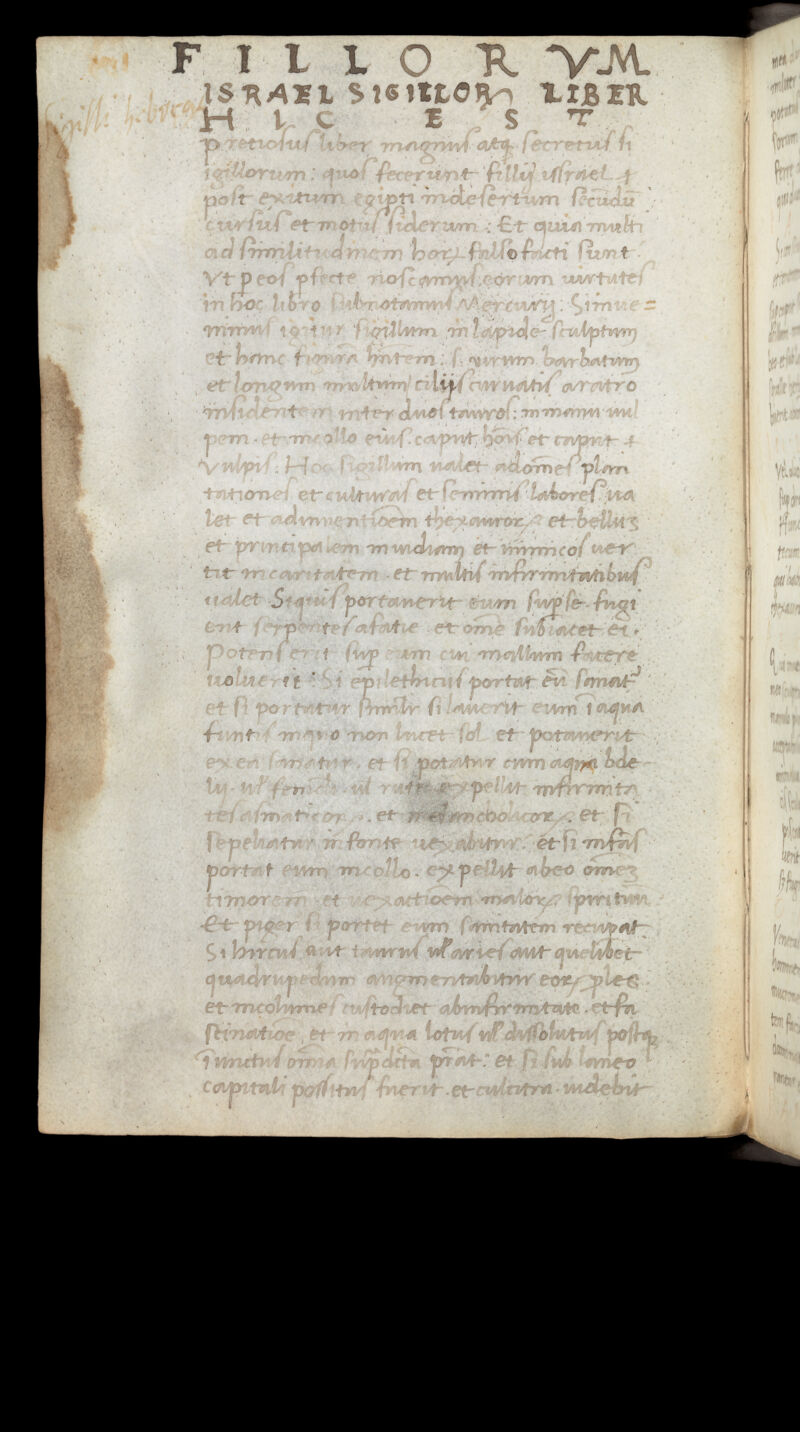 FILLORVM
ISRAEL SIGILLORꝜ LIBER
HIC EST
pretiosus liber magnus atq; secretus si
igillorum: quos fecerunt fillij issrael
post exitum egipti indesertum secūdū
cursus et motus siderum: Et quia multi
ad similitudinem horꝝ falso facti sunt.
Vt p eos pfecte noscamus eorum uirtutes
in hoc libro subnotamus Mercurij: Si inue=
nimus igitur sigillum in lapide sculptum
et hanc figurā hñtem: s. virum barbatum
et longum multum ciliis curuatis aratro
insidentem inter duos tauros: in manu uul
pem. et in collo eius. caput hois et caput
Vulpis. Hoc sigillum ualet adomēs plan
tationes et culturas et seminis labores ua
let et adinuentiōem thexaurorꝝ et bellus
et principalem inuidiam et inimicos uer
tit incaritatem. et multis infirmitatibus
ualet Siquis portauerit eum supse. fugi
ent serpentes afatie et omē subiacet ei.
Potens erit sup eum cui mallum facere
uoluerit: Si epilethicus portat eū sanat
et si portatur simlr si lauerit eum ī aqua
funtis inquo non lucet sol et potauerit
ex ea sanatur. et si potatur cum aqua bde
lij. ul feniculi ul rute expellit infirmita
tes asmaticorꝝ. et melancholicorꝝ. et si
sepeliatur in fonte uexabitur. et si infās
portat eum incollo. expellit abeo omes
timorem et uexatioem malorꝝ spirituu
Et piger si portet eum sanitatem recupat.
Si hircus aut taurus ul aries aut quelibet
quadrupedum augmentabitur eorꝝ ples
et incolumes custodiet abinfirmitate. et fa
scinatiōe et in aqua lotus ul dissolutus postq;
īunctus omīa supdcta prat: et si sub laneo
capitali possitus fuerit. et culcitra. uidebit